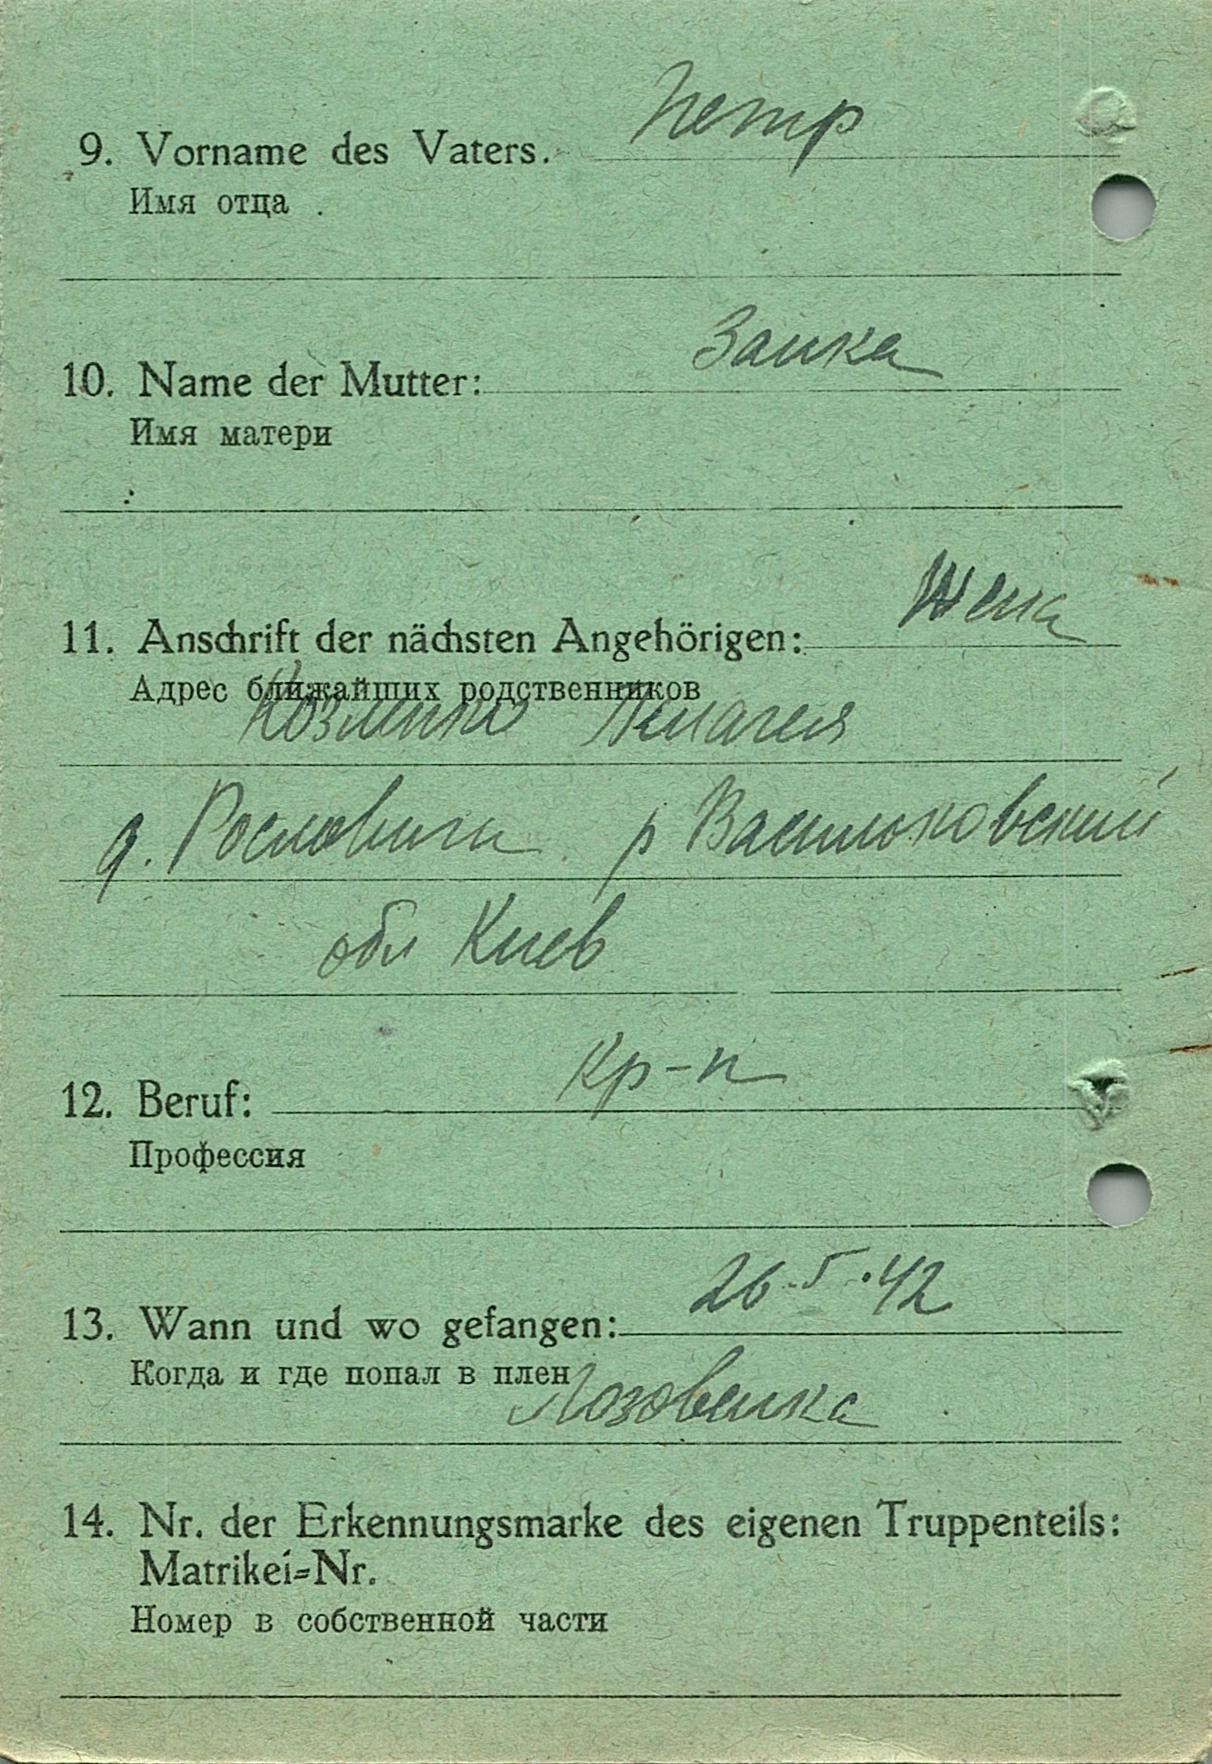 9. Vorname des Vaters. Петр
Имя отца
10. Name der Mutter: Заика
Имя матери
11. Anschrift der nächsten Angehörigen: Жена
Адрес ближайших родственников
Пелагея
д. Рословичи р Васильковский
обл Киев
12. Beruf: Кр-н
Профессия
13. Wann und wo gefangen: 26.5.42
Когда и где попал в плен
Лозовенка
14. Nr. der Erkennungsmarke des eigenen Truppenteils:
Matrikei=Nr.
Номер в собственной части